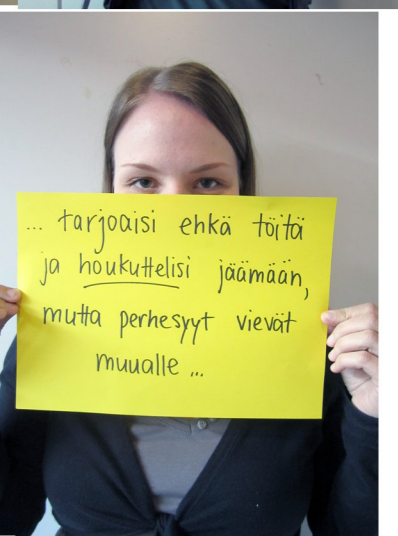 ... tarjoaisi ehkä töitä
ja houkuttelisi jäämään,
mutta perhesyyt vievät
muualle ...